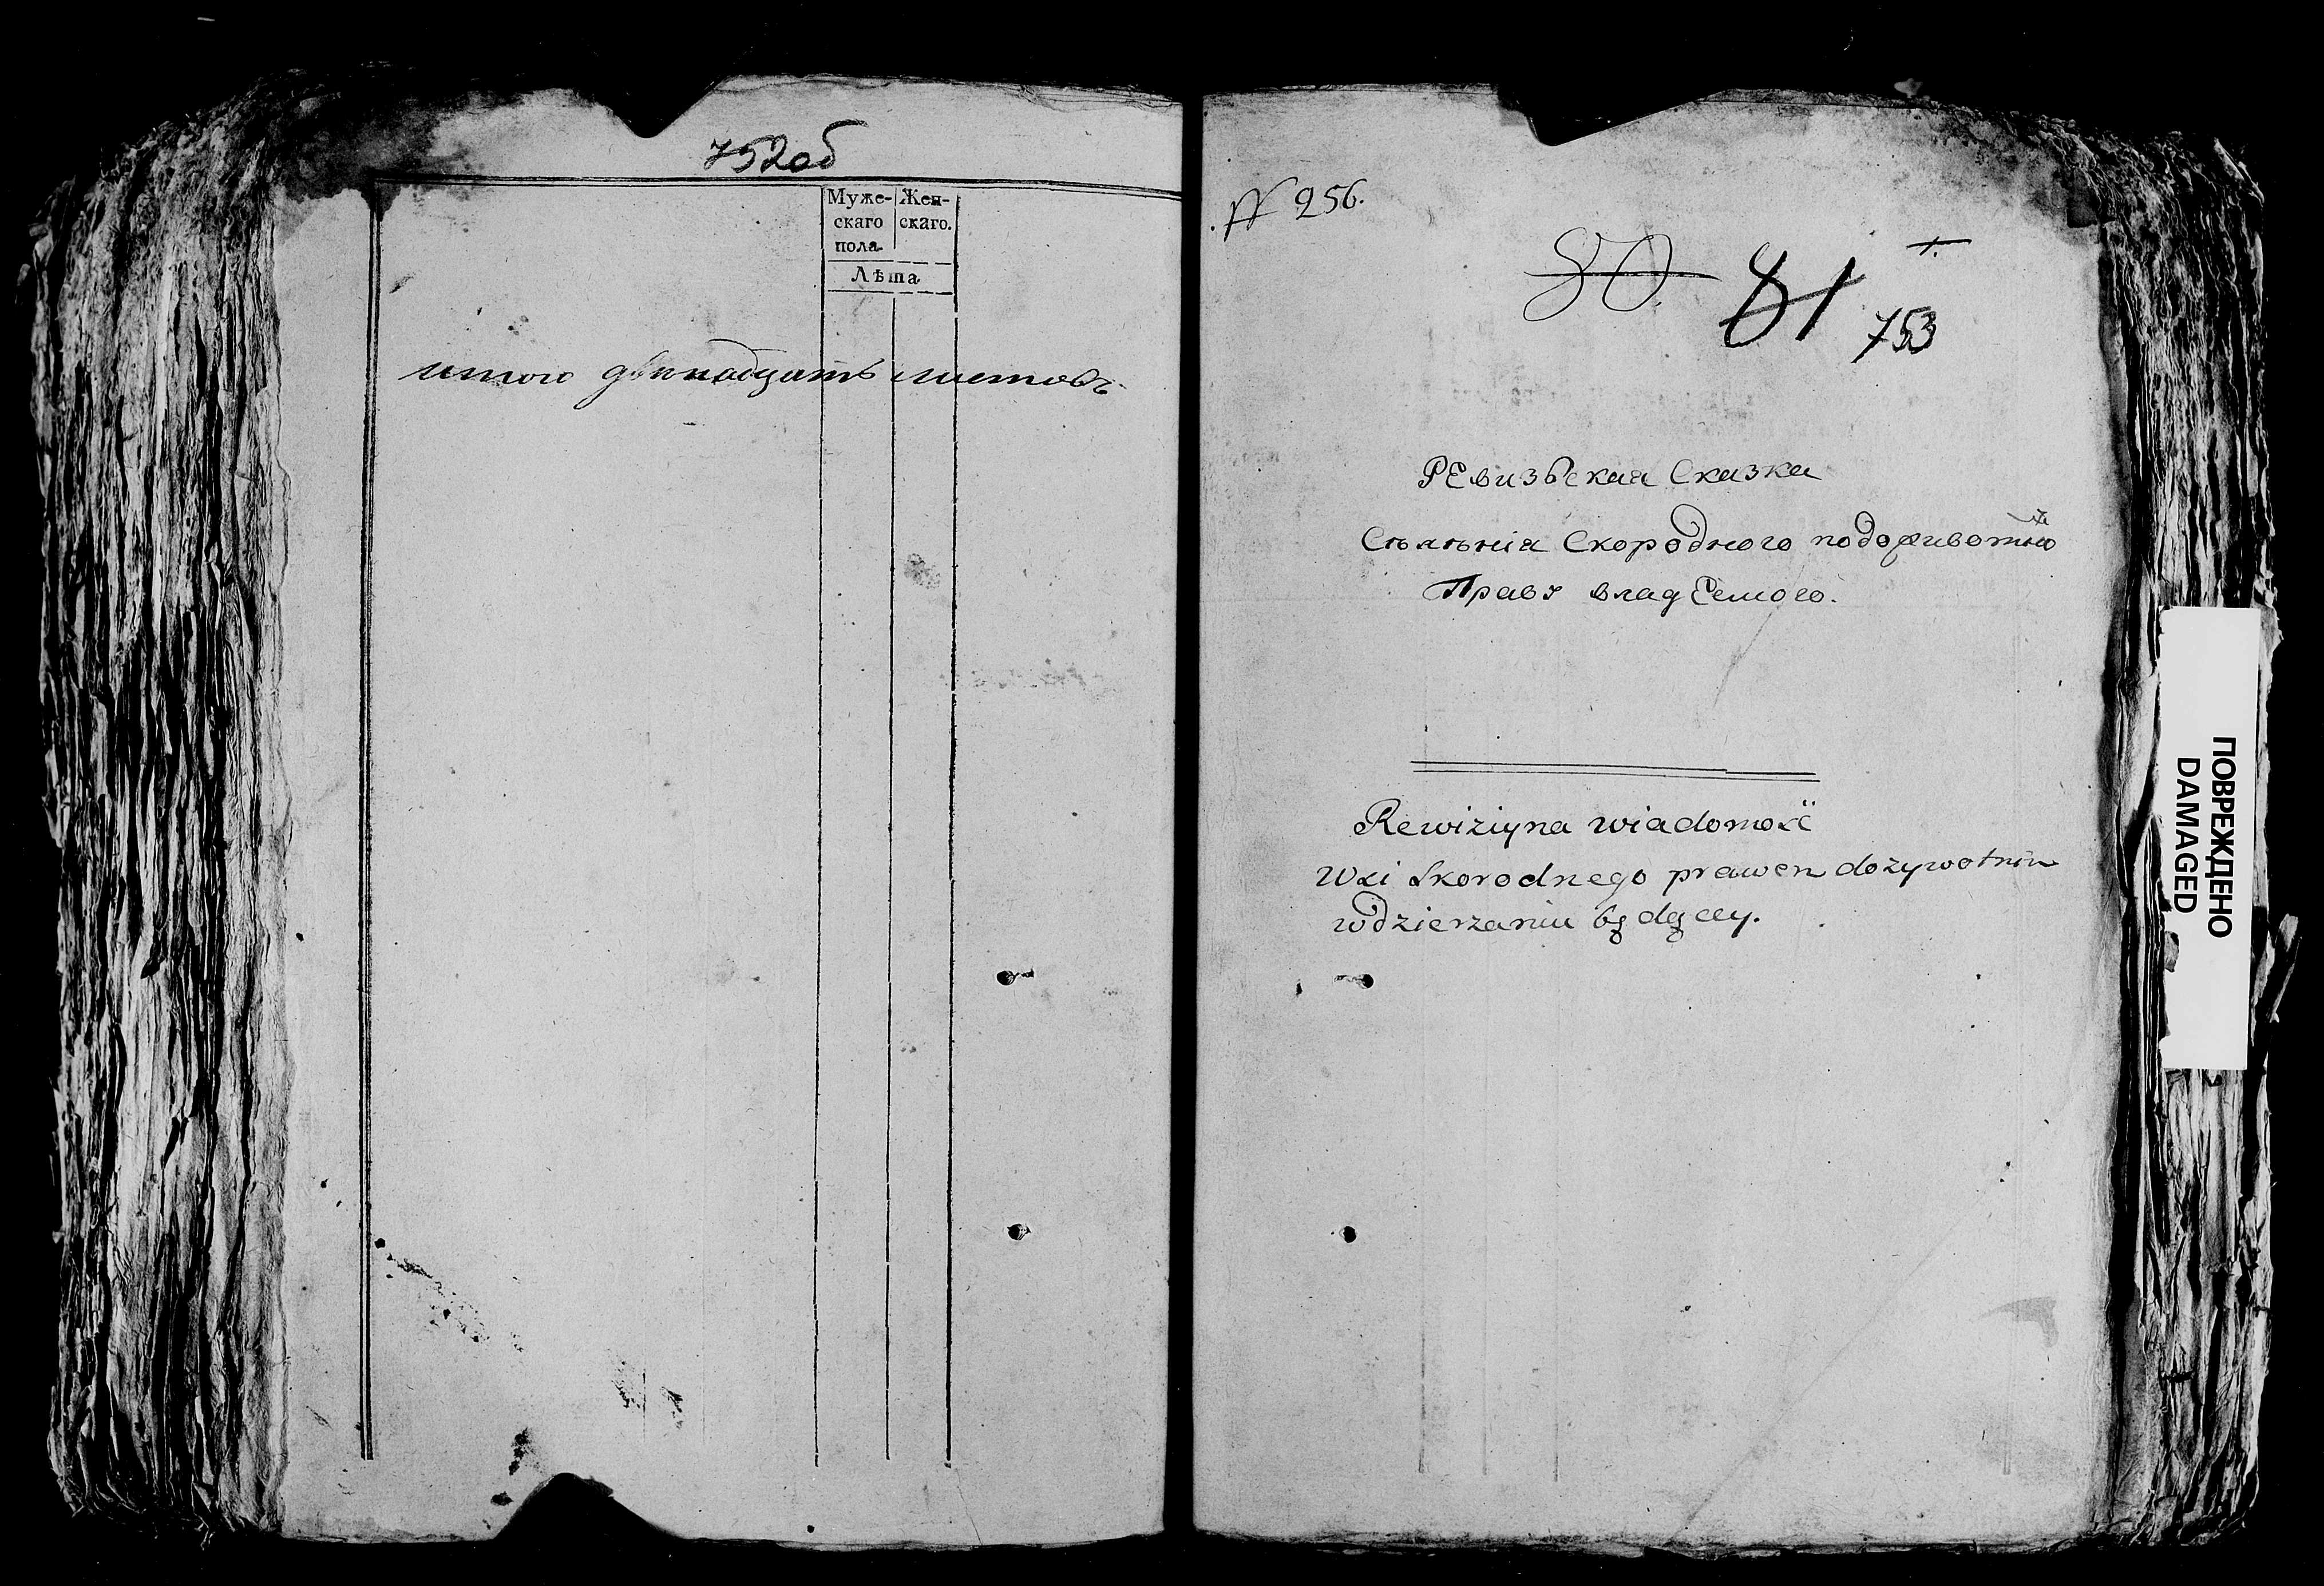 752об
Муже- Жен-
скаго скаго.
пола
Лѣта
итого двенадцать листовъ
№ 256.
80. 81 1.
753
РЕвизьская Сказка
Сѣлѣнія Скородного подоживотно
Правѫ владЕемого.
Rewiziyna wiadomość
Wsi Skorodnego prawem dożywotnim
wdzierzaniu będącey.
ПОВРЕЖДЕНО
DAMAGED